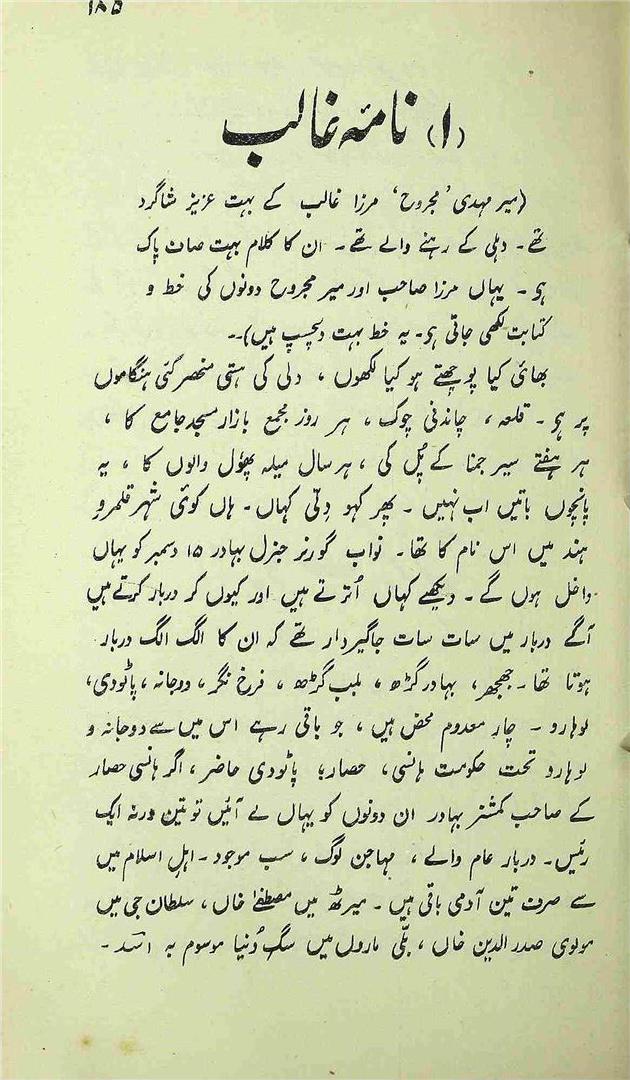 ۱۸۵
(۱) نامۂ غالب
(میر مہدی ’مجروح‘ مرزا غالب کے بہت عزیز شاگرد
تھے۔ دہلی کے رہنے والے تھے۔ ان کا کلام بہت صاف پاک
ہی۔ یہاں مرزا صاحب اور میر مجروح دونوں کی خط و
کتابت لکھی جاتی ہی۔ یہ خط بہت دلچسپ ہیں)۔۔
بھائی کیا پوچھتے ہو کیا لکھوں، دلی کی ہستی منحصر کئی ہنگاموں
پر ہی۔ قلعہ، چاندنی چوک، ہر روز مجمع بازار مسجد جامع کا،
ہر ہفتے سیر جمنا کے پُل کی، ہر سال میلہ پھوٗل والوں کا، یہ
پانچوں باتیں اب نہیں۔ پھر کہو دِلّی کہاں۔ ہاں کوئی شہر قلمرو
ہند میں اس نام کا تھا۔ نواب گورنر جنرل بہادر ۱۵ دسمبر کو یہاں
داخل ہوں گے۔ دیکھیے کہاں اُترتے ہیں اور کیوں کر دربار کرتے ہیں
آگے دربار میں سات سات جاگیردار تھے کہ ان کا الگ الگ دربار
ہوتا تھا۔ جھجھر، بہادر گڑھ، بلب گڑھ، فرخ نگر، دوجانہ، پاٹودی،
لوہارو۔ چار معدوم محض ہیں، جو باقی رہے اس میں سے دوجانہ و
لوہارو تحت حکومت ہانسی، حصار، پاٹودی حاضر، اگر ہانسی حصار
کے صاحب کمشنر بہادر ان دونوں کو یہاں لے آئیں تو تین ورنہ ایک
رئیس۔ دربار عام والے، مہاجن لوگ، سب موجود۔ اہلِ اسلام میں
سے صرف تین آدمی باقی ہیں۔ میرٹھ میں مصطفےٰ خاں، سلطان جی میں
مولوی صدر الدین خاں، بلّی ماروں میں سگِ دُنیا موسوم بہ اسد۔